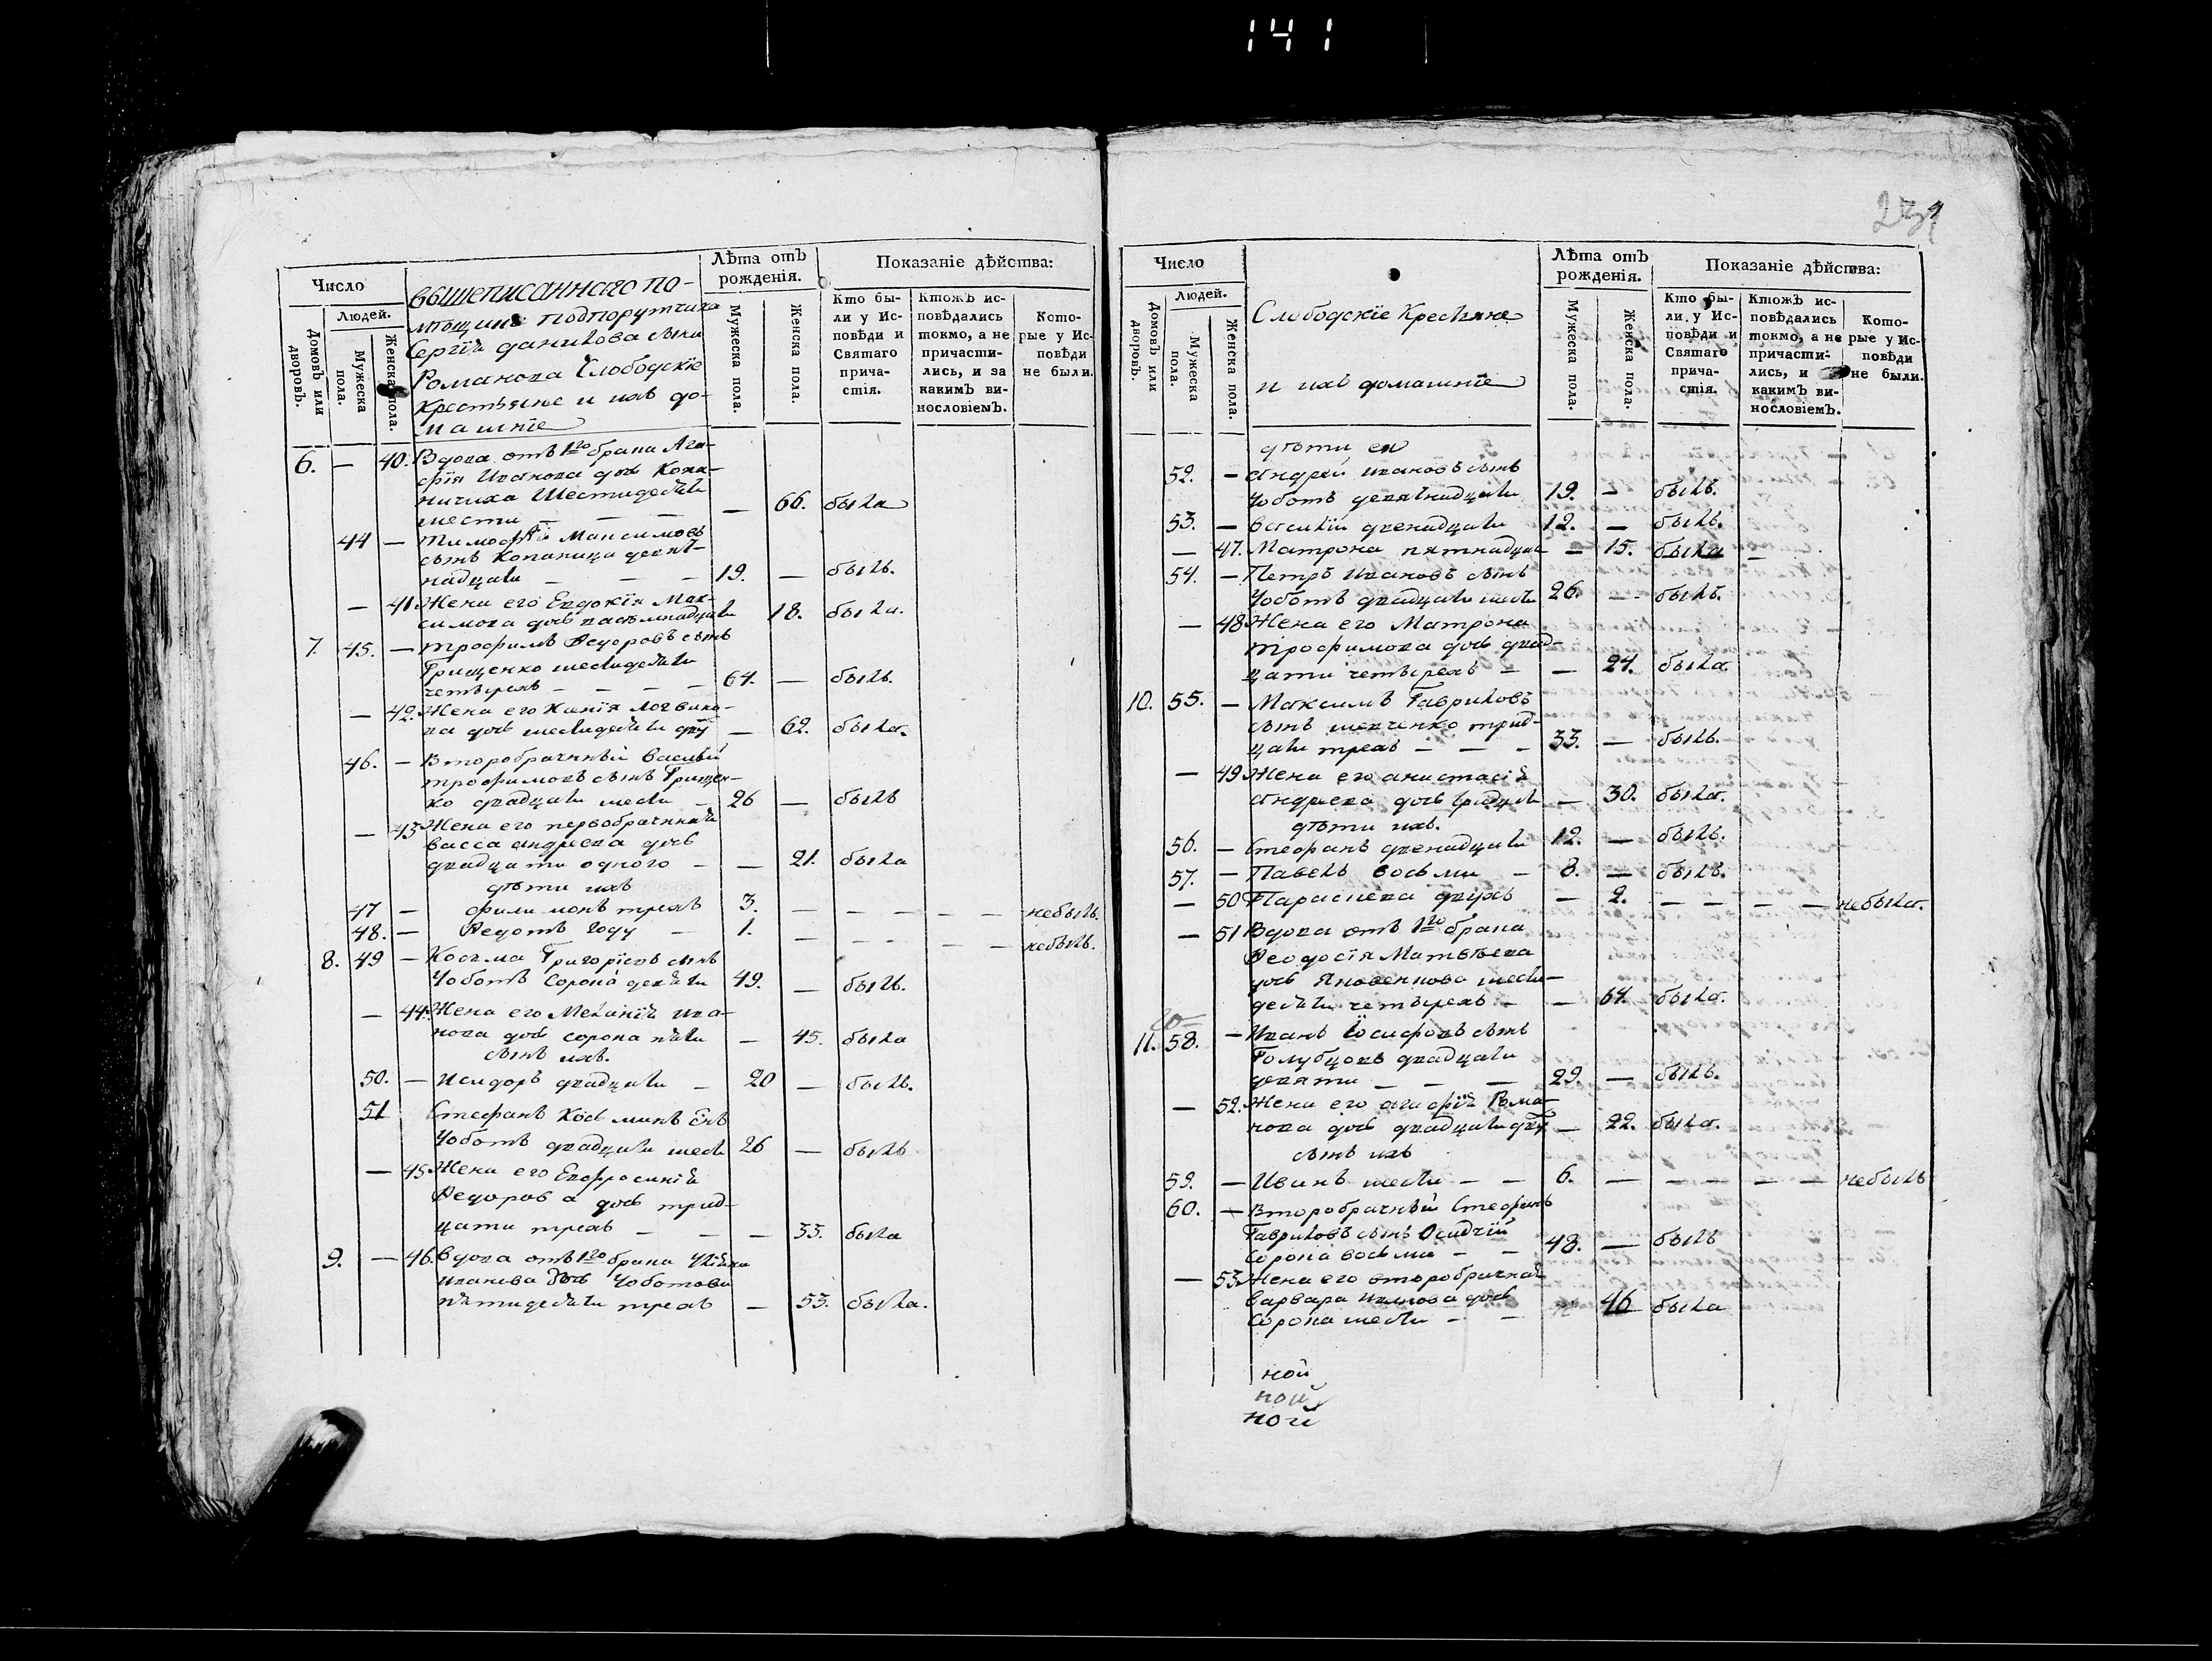 141
Число
Людей.
Домовъ или дворовъ.
Мужеска пола.
Женска пола.
вышеписаннаго по-
мѣщика подпорутчика
Сергія данилова сына
Романова Слободскіе
Крестьяне и ихъ до-
машніе
Лѣта отъ рожденія.
Мужеска пола.
Женска пола.
Показаніе дѣйства:
Кто бы-
ли у Ис-
повѣди и
Святаго
прича-
стія.
Ктожъ ис-
повѣдались
токмо, а не
причасти-
лись, и за
какимъ ви-
нословіемъ.
Кото-
рые у Ис-
повѣди
не были.
6. — 40. Вдова отъ 1го брака Ага-
фія Иванова дочь Копа-
ничиха Шестидесяти
шести — — — — 66. была
44 — Тимофей Максимовъ
сынъ Копаница девят-
надцати — — — 19. — былъ.
— 41. Жена его Евдокія Мак-
симова дочь васемнадцати 18. была.
7. 45. — Трофимъ Ѳедоровъ сынъ
Грищенко шестидесяти
четырехъ — — — — 64. — былъ.
— 42. Жена его Логвино-
ва дочь шестидесяти дву — 62. была.
46. — Второбрачный Василій
трофимовъ сынъ Грищен-
ко двадцати шести — 26 — былъ
— 43 Жена его первобрачная
васса андреева дочь
двадцати одного — — 21. была
дѣти ихъ
47 — филимонъ трехъ 3. — — — — — небылъ.
48. — Ѳедотъ году — 1. — — — — — небылъ.
8. 49 — Косьма Григоріевъ сынъ
Чоботъ Сорока девяти 49. — былъ.
— 44. Жена его Меланія ива-
нова дочь сорока пяти — 45. была
сынъ ихъ.
50. — Исидоръ двадцати — 20 — былъ.
51 Стефанъ Косьминъ Снъ
Чоботъ двадцати шести 26 — былъ
— 45 Жена его Евфросинія
Ѳедорова дочь трид-
цати трехъ — — — 33. была
9. — 46. Вдова отъ 1го брака
иванова дочь Чоботова
пятидесяти трехъ — 53. была.
Число
Людей.
Домовъ или дворовъ.
Мужеска пола.
Женска пола.
Слободскіе Крестьяне
и ихъ домашніе
Лѣта отъ рожденія.
Мужеска пола.
Женска пола.
Показаніе дѣйства:
Кто бы-
ли у Ис-
повѣди и
Святаго
прича-
стія.
Ктожъ ис-
повѣдались
токмо, а не
причасти-
лись, и
какимъ ви-
нословіемъ.
Кото-
рые у Ис-
повѣди
не были.
дѣти ея
52. — Андрей ивановъ сынъ
Чоботъ девятнадцати 19. — былъ.
53. — Василій двенадцати 12. — былъ.
— 47. Матрона пятнадцати — 15. была —
54. — Петръ Ивановъ сынъ
Чоботъ двадцати шести 26. — былъ.
— 48 Жена его Матрона
трофимова дочь двад-
цати четырехъ — — 24. была.
10. 55. — Максимъ Гавриловъ
сынъ шевченко трид-
цати трехъ — — — 33. — былъ.
— 49 Жена его анистасія
Андреева дочь тридцати — 30. была.
дѣти ихъ.
56. — Стефанъ двенадцати 12. — былъ.
57. — Павелъ восьми — 8. — былъ.
— 50 Параскева двухъ — 2. — — — — небыла.
— 51 Вдова отъ 1го брака
Ѳеодосія Матвѣева
дочь Яковенкова шести-
десяти четырехъ — — 64. была.
11. 58. — Иванъ Іосифовъ сынъ
Голубцовъ двадцати
девяти — — — 29. — былъ.
— 52. Жена его агафія Рома-
нова дочь двадцати дву — 22. была.
сынъ ихъ
59. — Иванъ шести — — 6. — — — — — небылъ
60. — Второбрачный Стефанъ
Гавриловъ сынъ Осадчій
Сорока восьми — — 48. — былъ
— 53 Жена его второбрачная
Варвара дочь
Сорока шести — — 46 была
ной
ной
ной